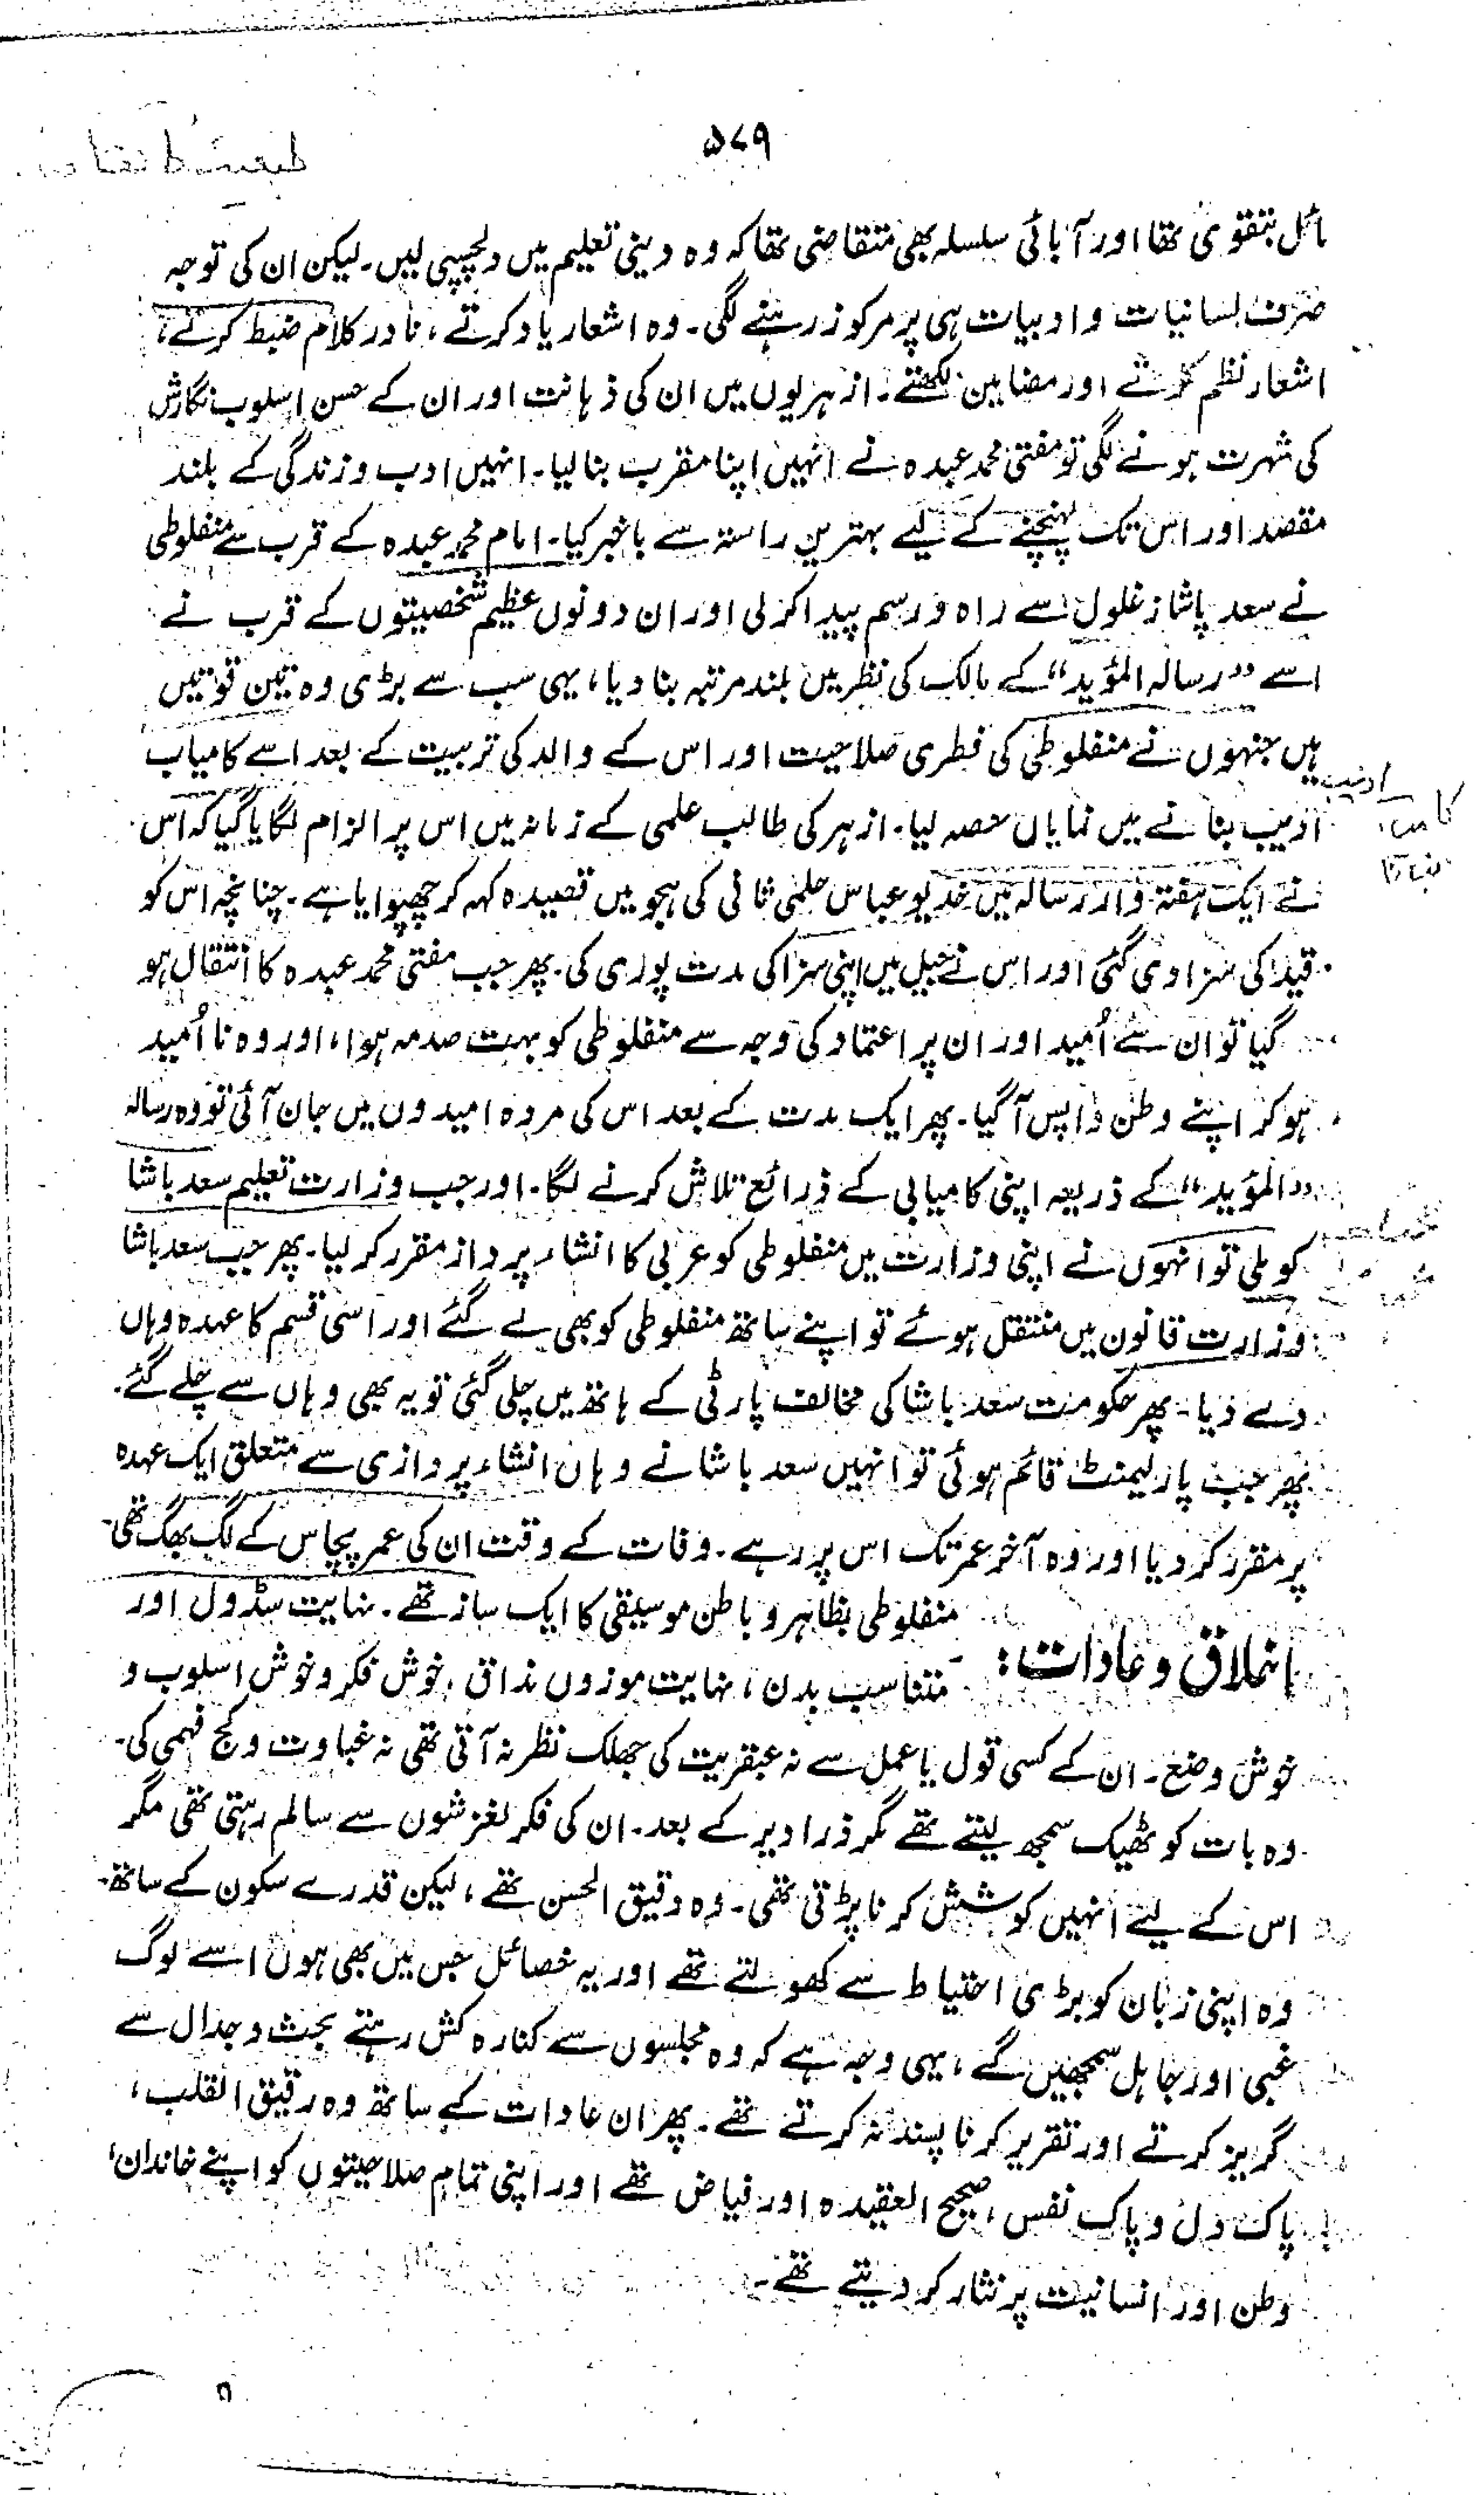 ۵۷۹
مائل بتقویٰ تھا اور آبائی سلسلہ بھی متقاضی تھا کہ وہ دینی تعلیم میں دلچسپی لیں۔ لیکن ان کی توجہ
صرف لسانیات و ادبیات ہی پر مرکوز رہنے لگی۔ وہ اشعار یاد کرتے، نادر کلام ضبط کرتے،
اشعار نظم کرتے اور مضامین لکھتے۔ ازہریوں میں ان کی ذہانت اور ان کے حسن اسلوب نگارش
کی شہرت ہونے لگی تو مفتی محمد عبدہ نے انہیں اپنا مقرب بنا لیا۔ انہیں ادب و زندگی کے بلند
مقصد اور اس تک پہنچنے کے لیے بہترین راستہ سے باخبر کیا۔ امام محمد عبدہ کے قرب سے منفلوطی
نے سعد پاشا زغلول سے راہ و رسم پیدا کر لی اور ان دونوں عظیم شخصیتوں کے قرب نے
اسے "رسالہ المؤید" کے مالک کی نظر میں بلند مرتبہ بنا دیا، یہی سب سے بڑی وہ تین قوتیں
ہیں جنہوں نے منفلوطی کی فطری صلاحیت اور اس کے والد کی تربیت کے بعد اسے کامیاب
ادیب بنانے میں نمایاں حصہ لیا۔ ازہر کی طالب علمی کے زمانہ میں اس پر الزام لگایا گیا کہ اس
نے ایک ہفتہ وار رسالہ میں خدیو عباس حلمی ثانی کی ہجو میں قصیدہ کہہ کر چھپوایا ہے۔ چنانچہ اس کو
قید کی سزا دی گئی اور اس نے جیل میں اپنی سزا کی مدت پوری کی۔ پھر جب مفتی محمد عبدہ کا انتقال ہو
گیا تو ان سے اُمید اور ان پر اعتماد کی وجہ سے منفلوطی کو بہت صدمہ ہوا، اور وہ نا اُمید
ہو کر اپنے وطن واپس آ گیا۔ پھر ایک مدت کے بعد اس کی مردہ امیدوں میں جان آئی تو وہ رسالہ
"المؤید" کے ذریعہ اپنی کامیابی کے ذرائع تلاش کرنے لگا۔ اور جب وزارت تعلیم سعد باشا
کو ملی تو انہوں نے اپنی وزارت میں منفلوطی کو عربی کا انشاء پرداز مقرر کر لیا۔ پھر جب سعد باشا
وزارت قانون میں منتقل ہوئے تو اپنے ساتھ منفلوطی کو بھی لے گئے اور اسی قسم کا عہدہ وہاں
دے دیا۔ پھر حکومت سعد باشا کی مخالف پارٹی کے ہاتھ میں چلی گئی تو یہ بھی وہاں سے چلے گئے۔
پھر جب پارلیمنٹ قائم ہوئی تو انہیں سعد باشا نے وہاں انشاء پردازی سے متعلق ایک عہدہ
پر مقرر کر دیا اور وہ آخر عمر تک اس پر رہے۔ وفات کے وقت ان کی عمر پچاس کے لگ بھگ تھی۔
اخلاق و عادات:
منفلوطی بظاہر و باطن موسیقی کا ایک ساز تھے۔ نہایت سڈول اور
متناسب بدن، نہایت موزوں مذاق، خوش فکر و خوش اسلوب و
خوش وضع۔ ان کے کسی قول یا عمل سے نہ عبقریت کی جھلک نظر نہ آتی تھی نہ غباوت و کج فہمی کی۔
وہ بات کو ٹھیک سمجھ لیتے تھے مگر ذرا دیر کے بعد۔ ان کی فکر لغزشوں سے سالم رہتی تھی مگر
اس کے لیے انہیں کوشش کرنا پڑتی تھی۔ وہ دقیق الحسن تھے، لیکن قدرے سکون کے ساتھ۔
وہ اپنی زبان کو بڑی احتیاط سے کھولتے تھے اور یہ خصائل جس میں بھی ہوں اسے لوگ
غبی اور جاہل سمجھیں گے، یہی وجہ ہے کہ وہ مجلسوں سے کنارہ کش رہتے بحث و جدال سے
گریز کرتے اور تقریر کرنا پسند نہ کرتے تھے۔ پھر ان عادات کے ساتھ وہ رقیق القلب،
پاک دل و پاک نفس، صحیح العقیدہ اور فیاض تھے اور اپنی تمام صلاحیتوں کو اپنے خاندان،
وطن اور انسانیت پر نثار کر دیتے تھے۔